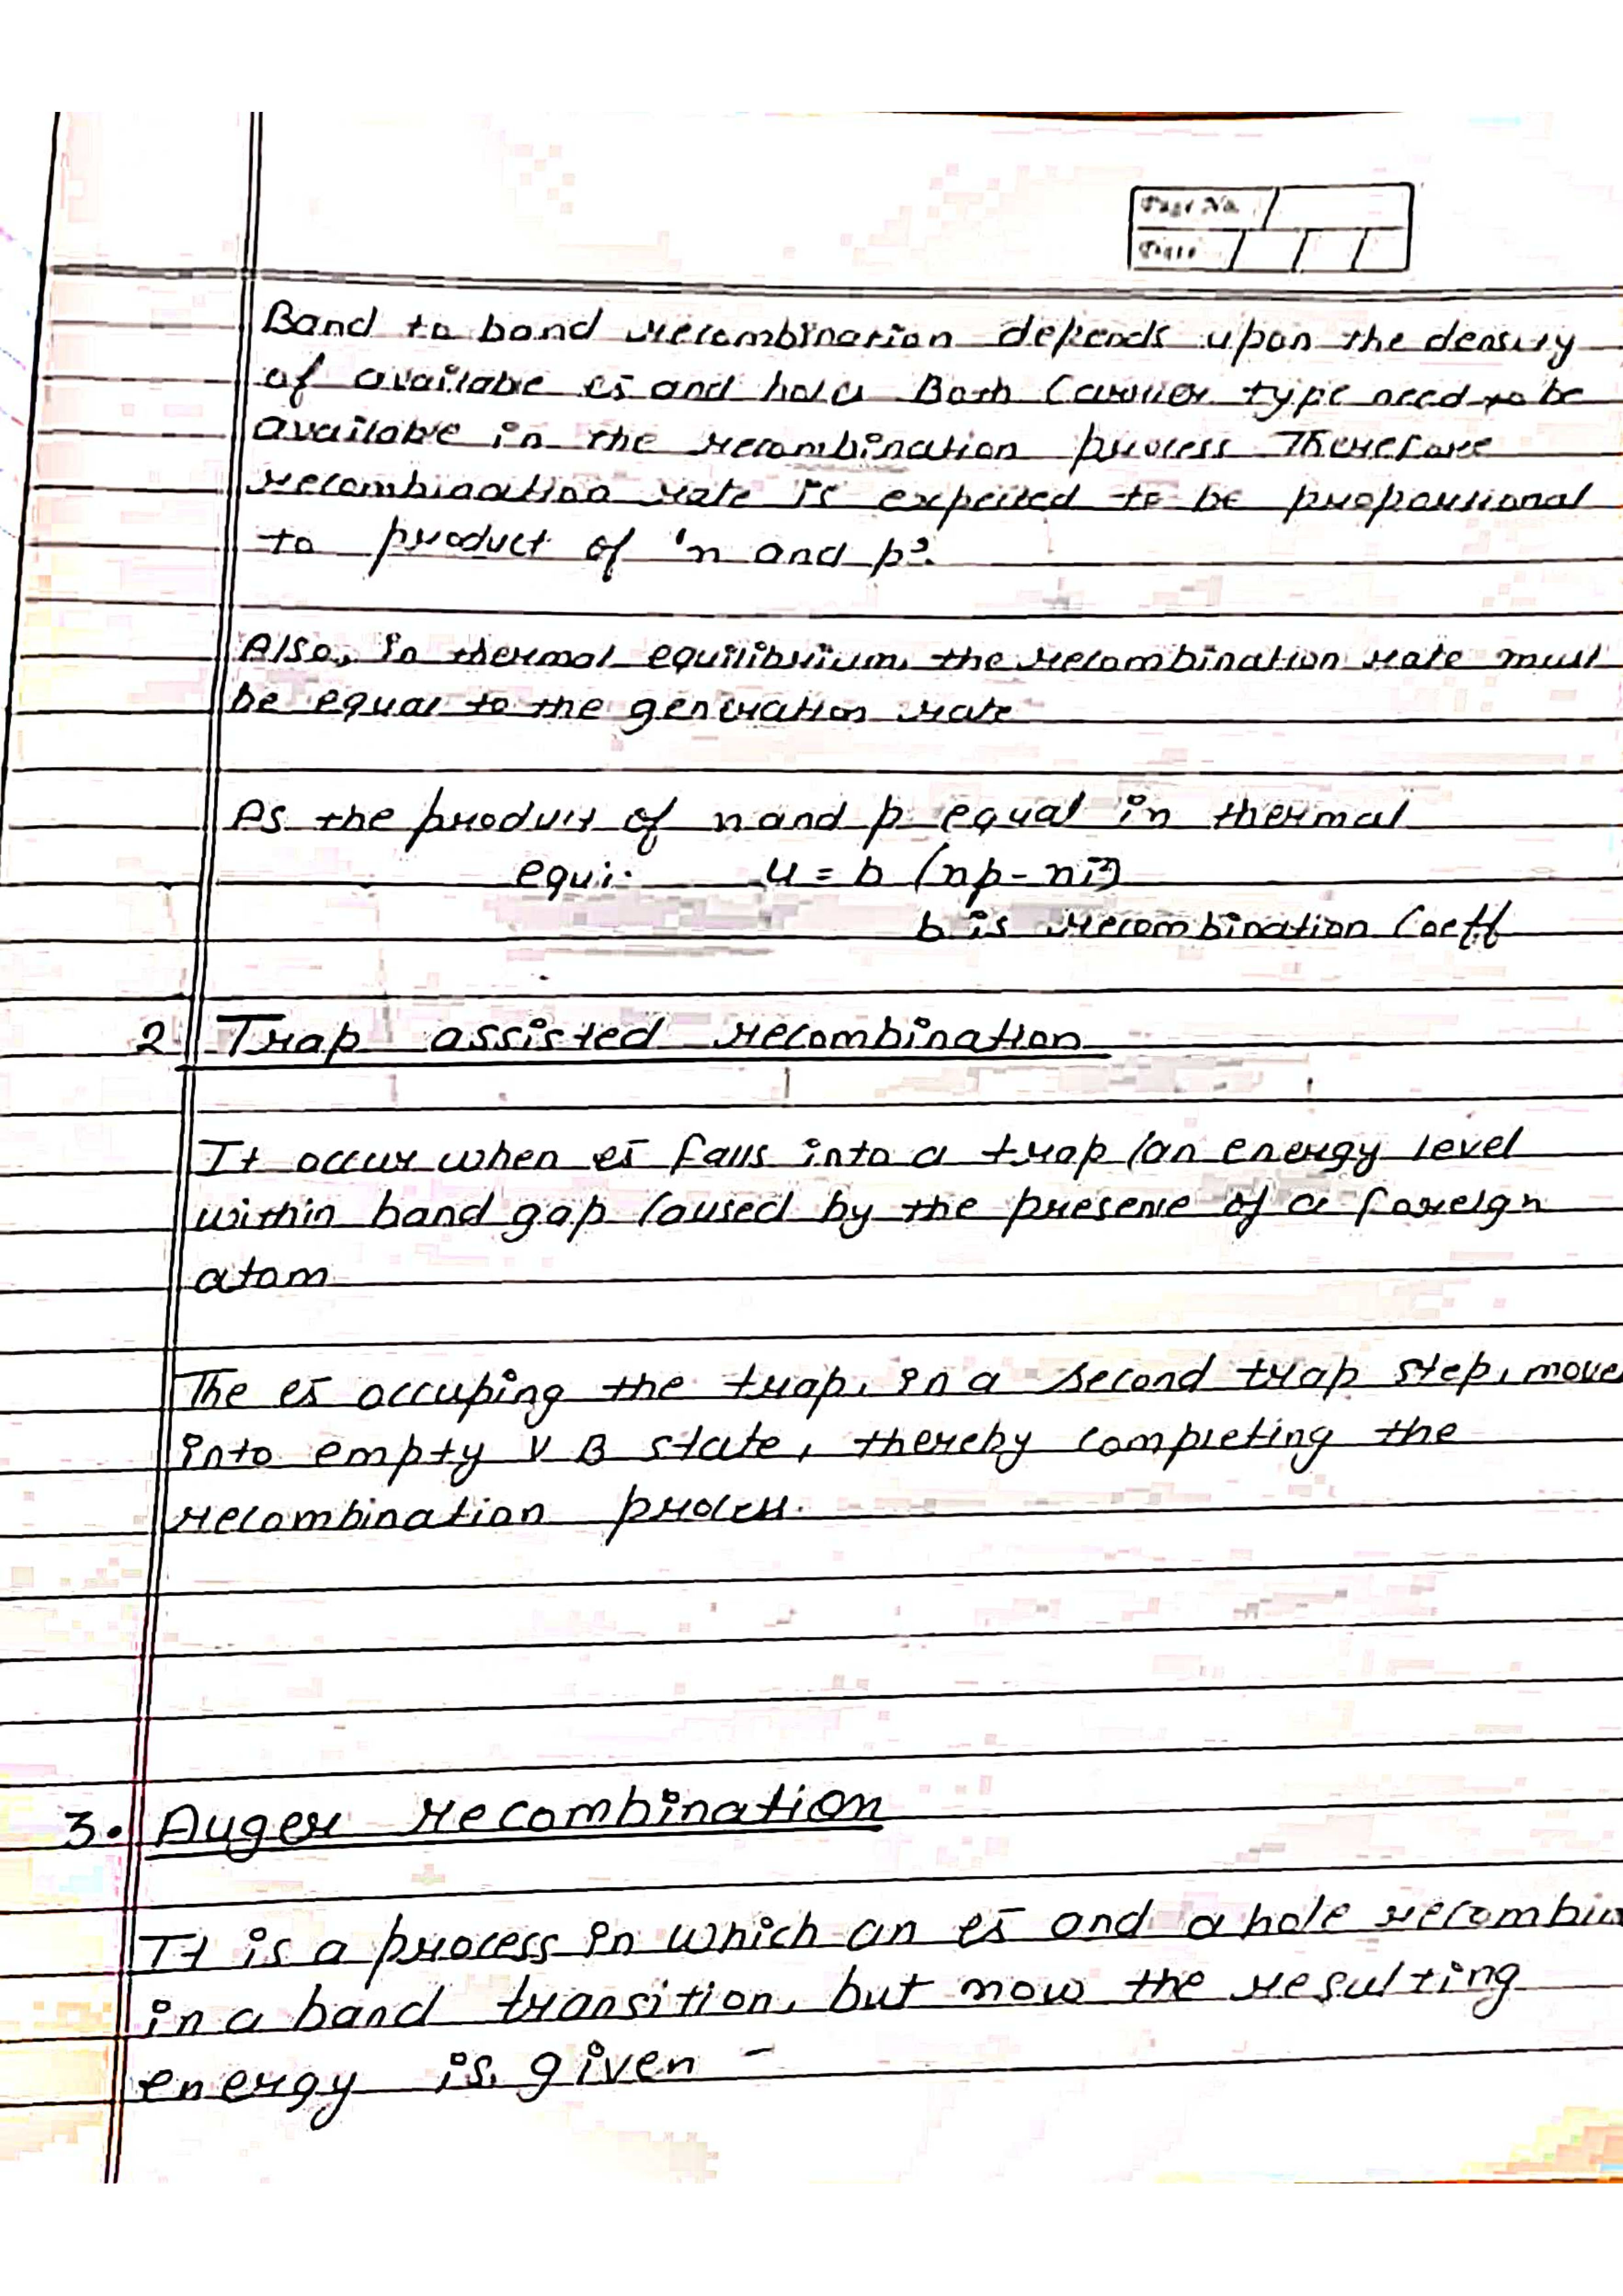 Page No.
Date
Band to band recombination depends upon the density
of available es and holes Both Carrier type need to be
available in the recombination process Therefore
recombination rate is expected to be proportional
to product of 'n and p'.
Also, in thermal equilibrium, the recombination rate must
be equal to the generation rate
As the product of n and p equal in thermal
equi. u = b (np - ni²)
b is recombination Coeff
2 Trap assisted recombination
It occur when es falls into a trap (an energy level
within band gap caused by the presene of a foreign
atom
The es occuping the trap, in a second trap step, move
into empty V B state, thereby completing the
recombination process.
3. Auger recombination
It is a process in which an es and a hole recombin
in a band transition, but now the resulting
energy is given -